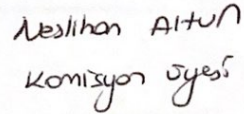 Neslihan Altun
Komisyon üyesi